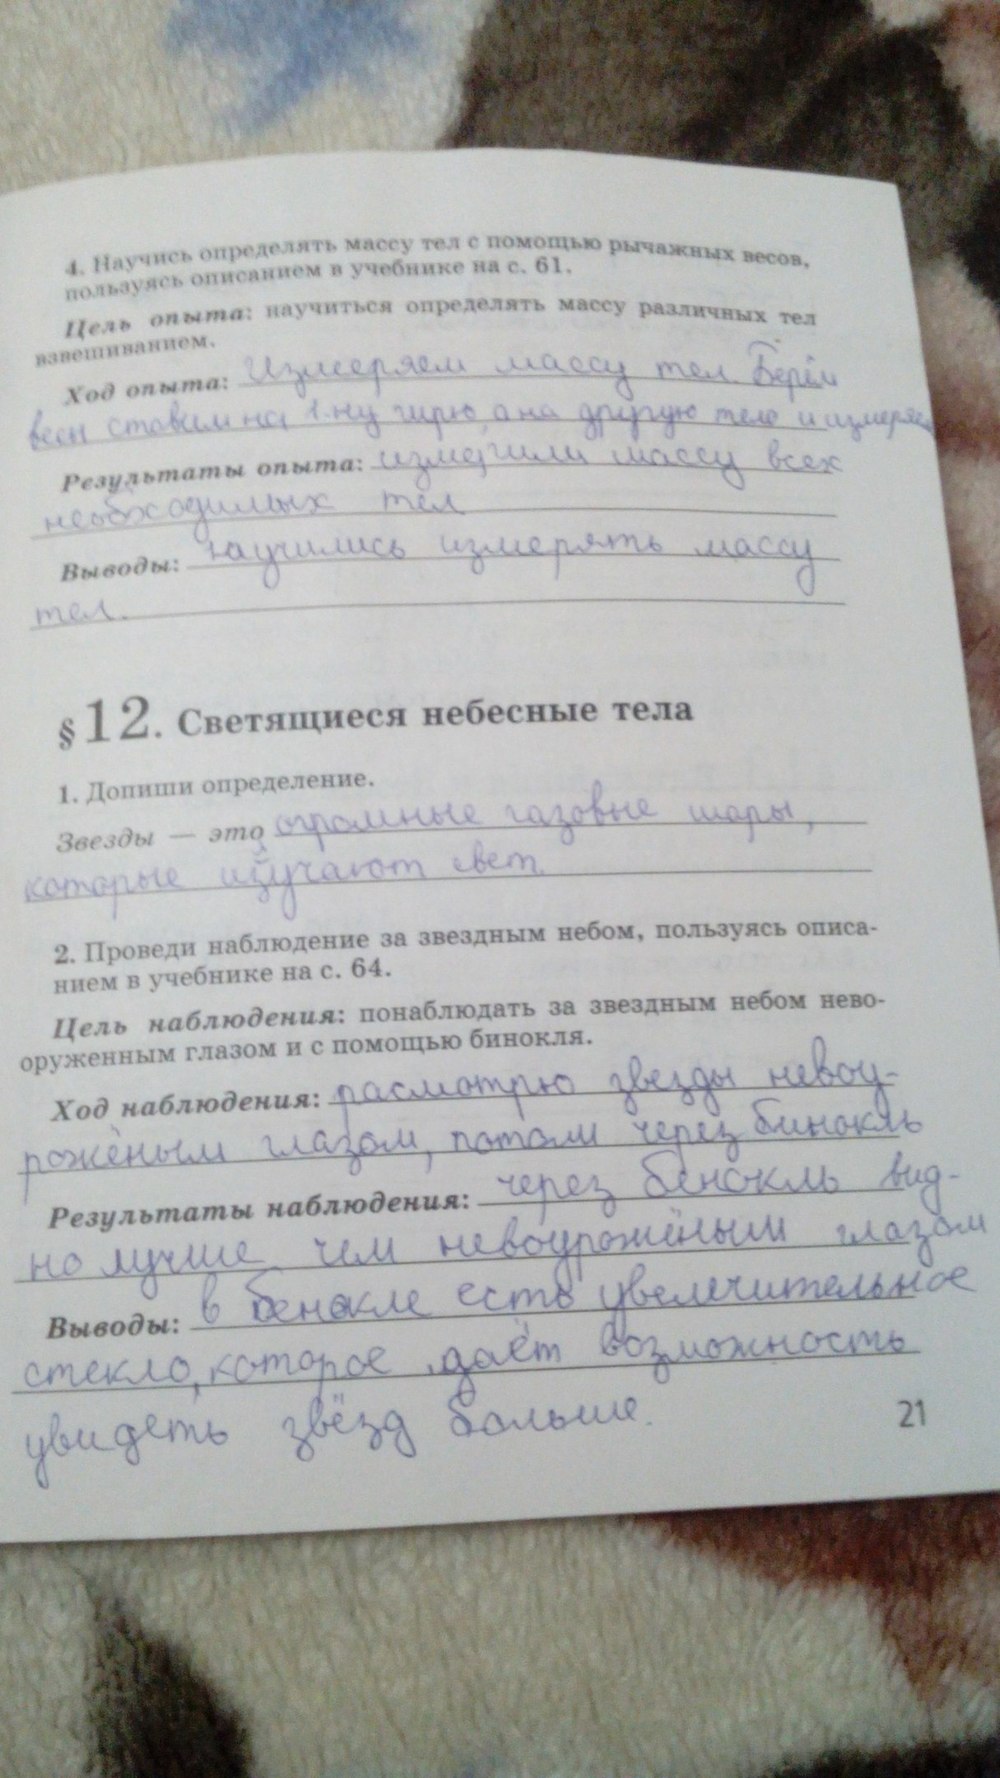 4. Научись определять массу тел с помощью рычажных весов,
пользуясь описанием в учебнике на с. 61.
Цель опыта: научиться определять массу различных тел
взвешиванием.
Ход опыта: Измеряем массу тел. Берём
весы ставим на 1-ну гирю, а на другую тело и измеряем
Результаты опыта: измерили массу всех
необходимых тел
Выводы: научились измерять массу
тел.
§ 12. Светящиеся небесные тела
1. Допиши определение.
Звезды — это огромные газовые шары,
которые излучают свет.
2. Проведи наблюдение за звездным небом, пользуясь описа-
нием в учебнике на с. 64.
Цель наблюдения: понаблюдать за звездным небом нево-
оруженным глазом и с помощью бинокля.
Ход наблюдения: расмотрю звезды невоу-
рожёным глазом, потом через бинокль
Результаты наблюдения: через бенокль вид-
но лучше чем невоурожёным глазом
Выводы: в бенокле есть увеличительное
стекло, которое даёт возможность
увидеть звёзд больше.
21